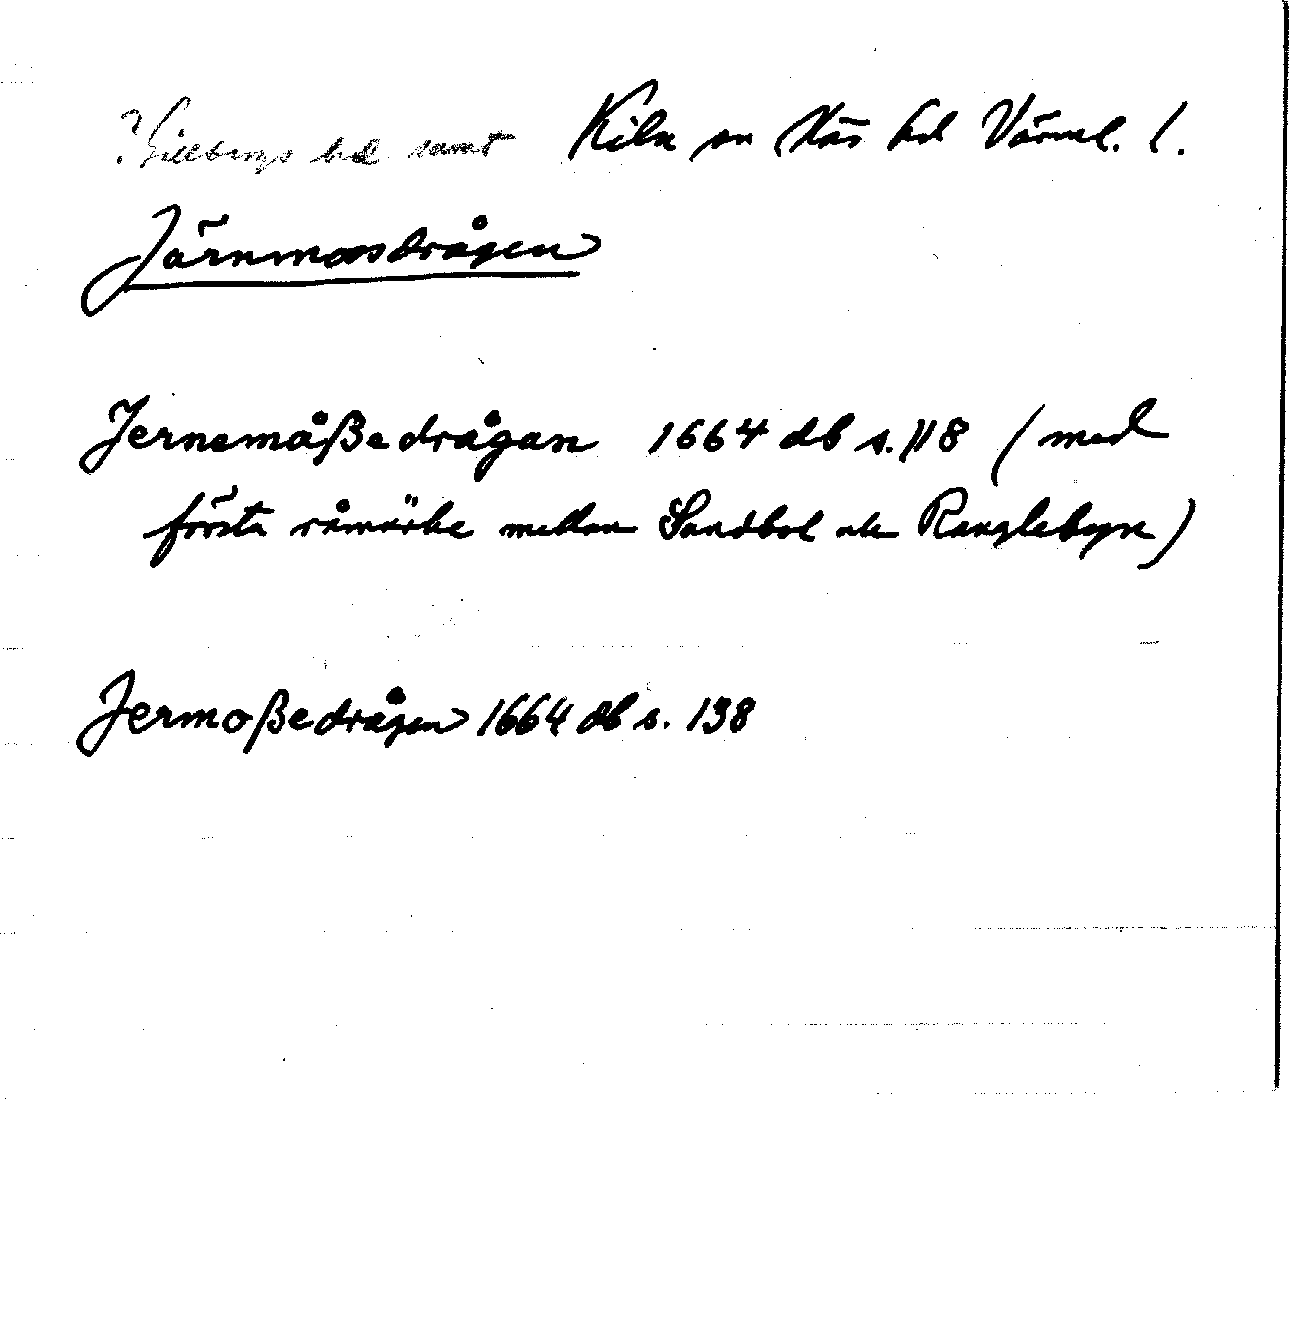 Gillbergs hd samt Kila sn Näs hd Värml. l.
Järnmossdrågen
Jernemåßedrågan 1664 db s. 118 (med
första råmärke mellan Sandbol och Ranglebyn)
Jermoßedrågen 1664 db s. 138